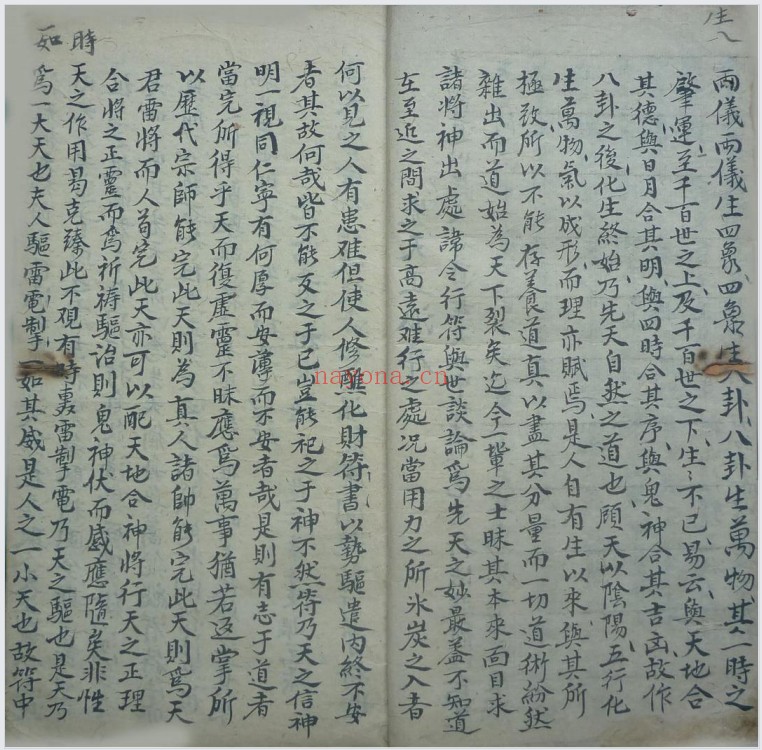 生八
兩儀兩儀生四象四象生八卦八卦生萬物其一時之
肇運至千百世之上及千百世之下生〻不已易云與天地合
其德與日月合其明與四時合其序與鬼神合其吉凶故作
八卦之後化生終始乃先天自然之道也頋天以陰陽五行化
生萬物氣以成形而理亦賦焉是人自有生以來與其所
極致所以不能存養道真以盡其分量而一切道術紛然
雜出而道始為天下裂矣迄今一輩之士昧其本來面目求
諸將神出處諱令行符與世談論爲先天之妙最盖不知道
在至近之間求之于高遠难行之處况當用力之所氷炭之入者
何以見之人有患难但使人修醮化財符書以勢驅遣内終不安
者其故何哉皆不能反之于已豈能祀之于神不然符乃天之信神
明一視同仁寧有何厚而安薄而不安者哉是則有志于道者
當完所得乎天而復虚靈不昧應爲萬事猶若返掌所
以歷代宗師能完此天則為真人諸帥能完此天則爲天
君雷將而人苟完此天亦可以配天地合神將行天之正理
合將之正靈而爲祈禱驅治則鬼神伏而感應隨矣非性
天之作用曷克臻此不覌有時轟雷掣電乃天之驅也是天乃
爲一大天也夫人驅雷電掣一如其威是人之一小天也故符中
時
一如
nayona.cn